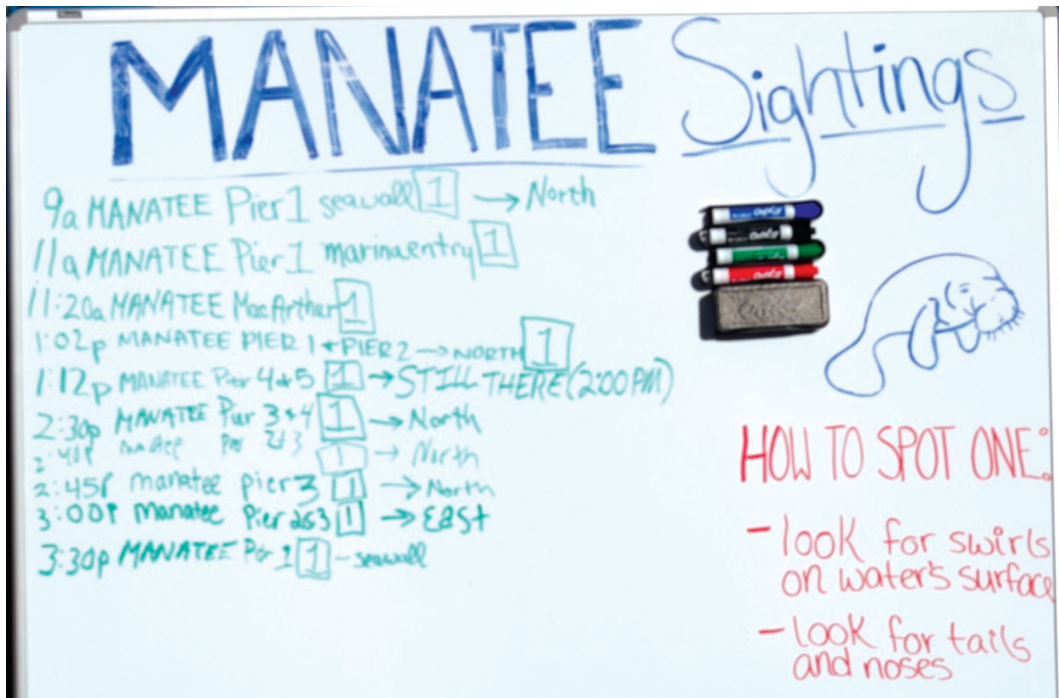 MANATEE Sightings
9a MANATEE Pier 1 seawall 1 → North
11a MANATEE Pier 1 marina entry 1
11:20a MANATEE MacArther 1
1:02p MANATEE PIER 1 + PIER 2 → NORTH 1
1:12p MANATEE Pier 4 & 5 1 → STILL THERE (2:00 PM)
2:30p MANATEE Pier 3 & 4 1 → North
2:40p manatee Pier 2 & 3 1 → North
2:45p manatee pier 3 1 → North
3:00p manatee Pier 2&3 1 → EAST
3:30p MANATEE Pier 1 1 - seawall
EXPO
EXPO
EXPO
EXPO
HOW TO SPOT ONE:
- look for swirls
on water's surface
- look for tails
and noses